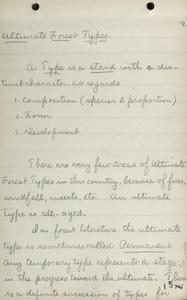 Ultimate Forest Types.
A Type is a stand with a dis-
tinct character, as regards
1. Composition (species & proportion)
2. Form
3. Development
There are very few areas of Ultimate
Forest Types in this country, because of fires,
windfall, insects, etc. An ultimate
type is all-aged.
In forest literature the ultimate
type is sometimes called Permanent.
Any temporary type represents a stage
in the progress toward the ultimate. There
is a definite succession of types for